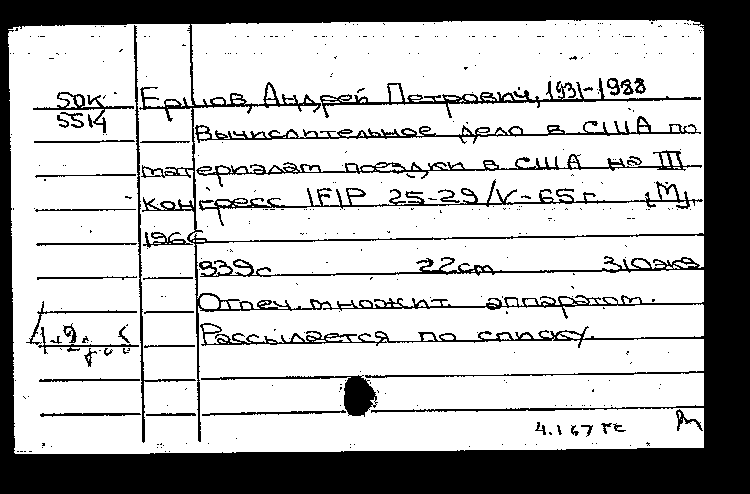 50к Ершов, Андрей Петрович, 1931-1988
5514
Вычислительное дело в США по
материалам поездки в США на III
конгресс IFIP 25-29/V-65 г. [М],
1966
339с 22cm 310экз
Отпеч. множит. аппаратом.
Рассылается по списку.